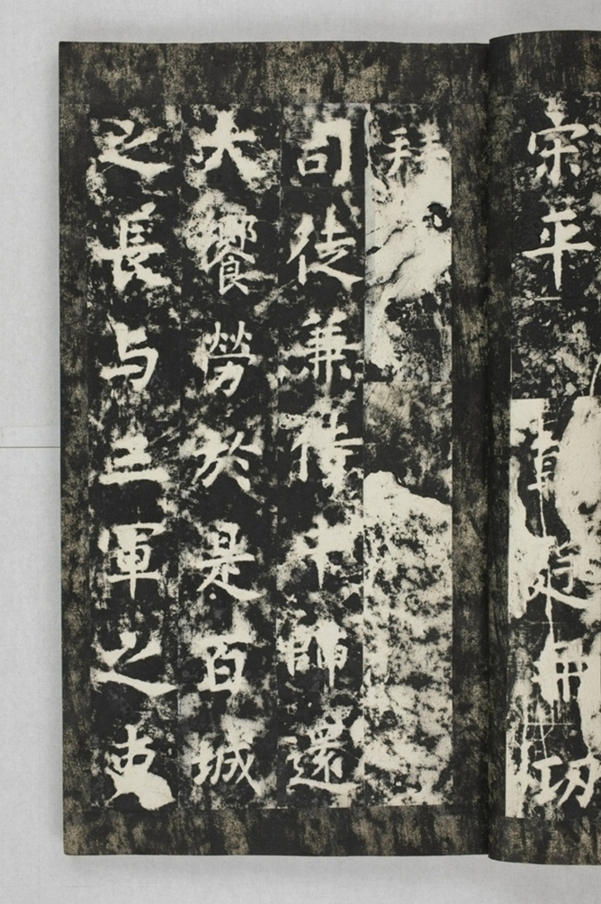 宋平
廷冊功
拜
司徒兼侍中師還
大饗勞於是百城
之長与三軍之吏